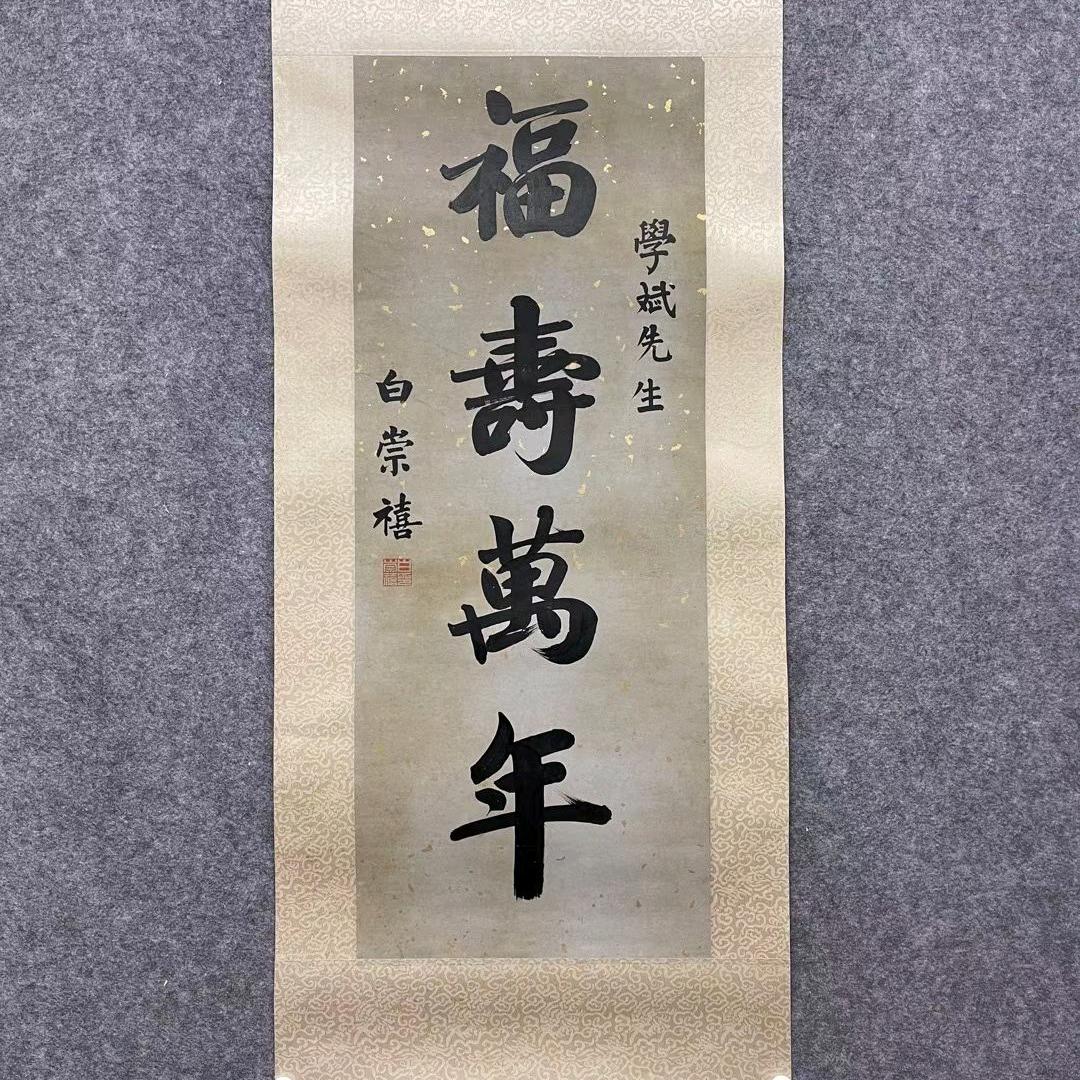 學斌先生
福壽萬年
白崇禧